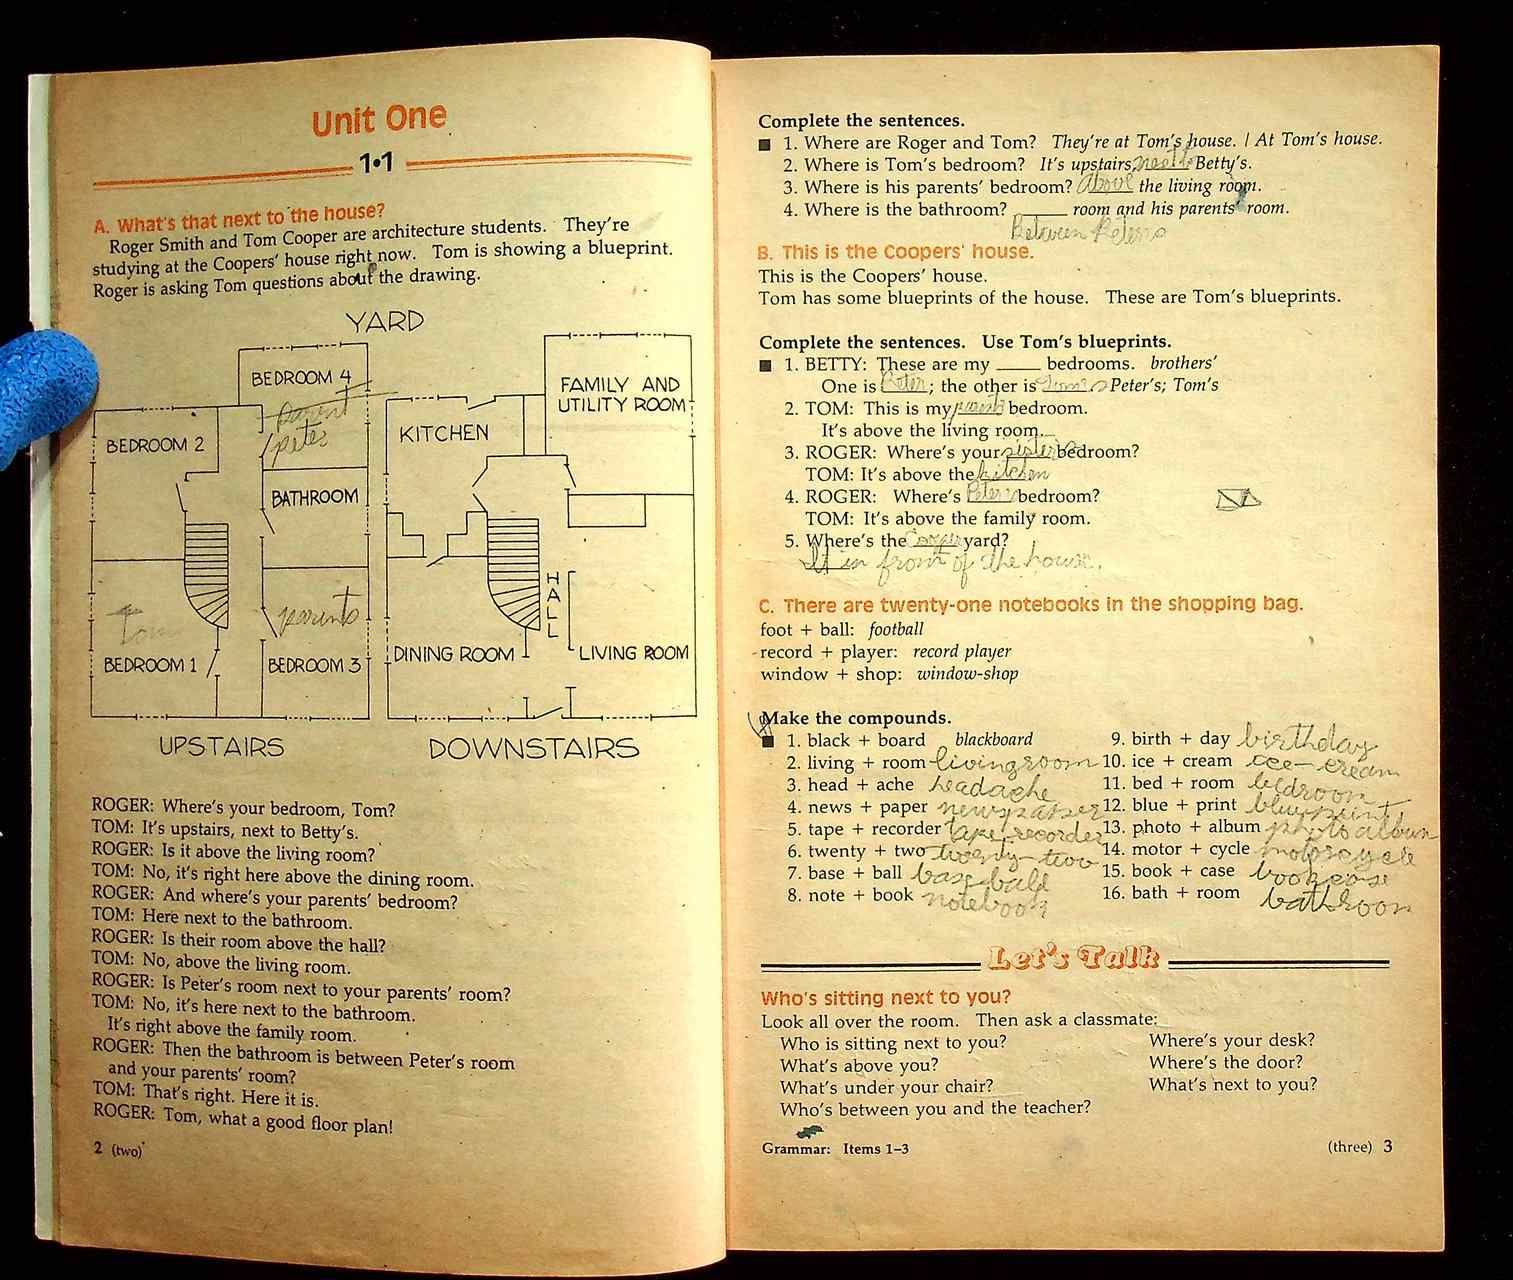 Unit One
1•1
A. What's that next to the house?
Roger Smith and Tom Cooper are architecture students. They're
studying at the Coopers' house right now. Tom is showing a blueprint.
Roger is asking Tom questions about the drawing.
YARD
BEDROOM 4
parent
peter
BEDROOM 2
BATHROOM
Tom
parents
BEDROOM 1
BEDROOM 3
UPSTAIRS
FAMILY AND
UTILITY ROOM
KITCHEN
HALL
DINING ROOM
LIVING ROOM
DOWNSTAIRS
ROGER: Where's your bedroom, Tom?
TOM: It's upstairs, next to Betty's.
ROGER: Is it above the living room?
TOM: No, it's right here above the dining room.
ROGER: And where's your parents' bedroom?
TOM: Here next to the bathroom.
ROGER: Is their room above the hall?
TOM: No, above the living room.
ROGER: Is Peter's room next to your parents' room?
TOM: No, it's here next to the bathroom.
It's right above the family room.
ROGER: Then the bathroom is between Peter's room
and your parents' room?
TOM: That's right. Here it is.
ROGER: Tom, what a good floor plan!
2 (two)
Complete the sentences.
1. Where are Roger and Tom? They're at Tom's house. / At Tom's house.
2. Where is Tom's bedroom? It's upstairs, Betty's.
3. Where is his parents' bedroom? Above the living room.
4. Where is the bathroom? ______ room and his parents' room.
Between Peters
B. This is the Coopers' house.
This is the Coopers' house.
Tom has some blueprints of the house. These are Tom's blueprints.
Complete the sentences. Use Tom's blueprints.
1. BETTY: These are my ______ bedrooms. brothers'
One is Peter; the other is Tom's Peter's; Tom's
2. TOM: This is my parents bedroom.
It's above the living room.
3. ROGER: Where's your sister's bedroom?
TOM: It's above the kitchen
4. ROGER: Where's Peter's bedroom?
TOM: It's above the family room.
5. Where's the Cooper yard?
It in front of the house.
C. There are twenty-one notebooks in the shopping bag.
foot + ball: football
record + player: record player
window + shop: window-shop
Make the compounds.
1. black + board blackboard
2. living + room livingroom
3. head + ache headache
4. news + paper newspaper
5. tape + recorder tape recorder
6. twenty + two twenty-two
7. base + ball baseball
8. note + book notebook
9. birth + day birthday
10. ice + cream ice-cream
11. bed + room bedroom
12. blue + print blueprint
13. photo + album photo album
14. motor + cycle motorcycle
15. book + case bookcase
16. bath + room bathroom
Let's Talk
Who's sitting next to you?
Look all over the room. Then ask a classmate:
Who is sitting next to you?
What's above you?
What's under your chair?
Who's between you and the teacher?
Where's your desk?
Where's the door?
What's next to you?
Grammar: Items 1–3
(three) 3